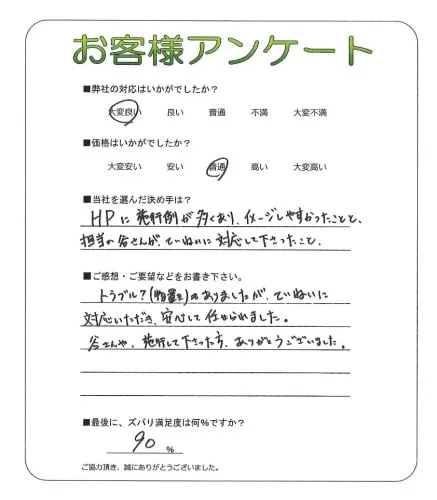 お客様アンケート
■弊社の対応はいかがでしたか?
大変良い 良い 普通 不満 大変不満
■価格はいかがでしたか?
大変安い 安い 普通 高い 大変高い
■当社を選んだ決め手は?
HPに施行例が多くあり、イメージしやすかったことと、
担当の谷さんが、ていねいに対応して下さったこと、
■ご感想・ご要望などをお書き下さい。
トラブル?(物置き)もありましたが、ていねいに
対応いただき、安心して任せられました。
谷さんや、施行して下さった方、ありがとうございました。
■最後に、ズバリ満足度は何%ですか?
90 %
ご協力頂き、誠にありがとうございました。